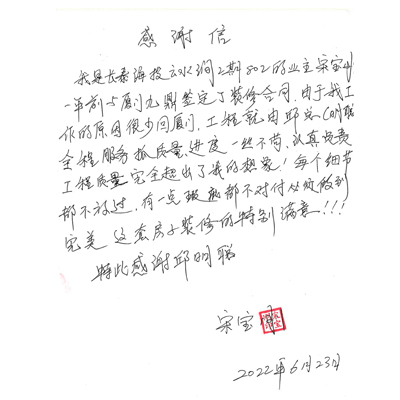 感谢信
我是长泰海投云水涧2期802的业主宋宝
一年前与厦门九鼎签定了装修合同,由于我工
作的原因很少回厦门,工程就由邱总(明聪)
全程服务抓质量、进度一丝不苟,认真负责
工程质量完全超出了我的想象!每个细节
都不放过,有一点瑕疵都不对付必须做到
完美 这套房子装修的特别满意!!!
特此感谢邱明聪
宋宝
2022年6月23日